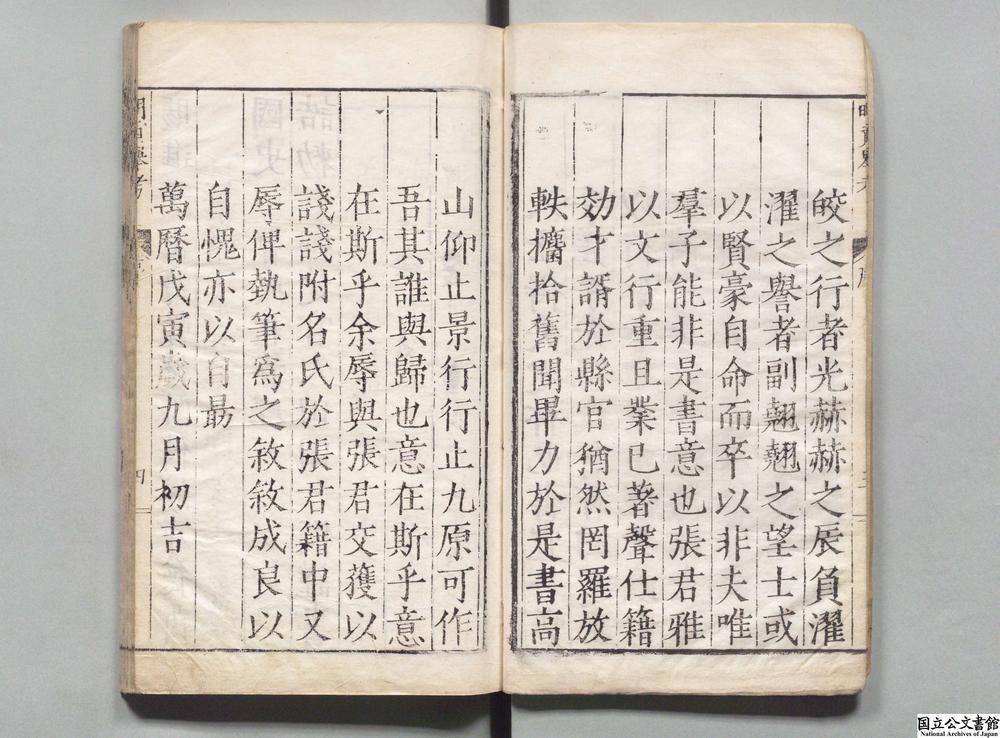 皎之行者光赫赫之辰負濯
濯之譽者副翹翹之望士或
以賢豪自命而卒以非夫唯
羣子能非是書意也張君雅
以文行重且業已著聲仕籍
効才諝於縣官猶然罔羅放
軼攟拾舊聞畢力於是書高
山仰止景行行止九原可作
吾其誰與歸也意在斯乎意
在斯乎余辱與張君交獲以
諓諓附名氏於張君籍中又
辱俾執筆爲之敘敘成良以
自愧亦以自勗
萬曆戊寅歲九月初吉
四
国立公文書館
National Archives of Japan